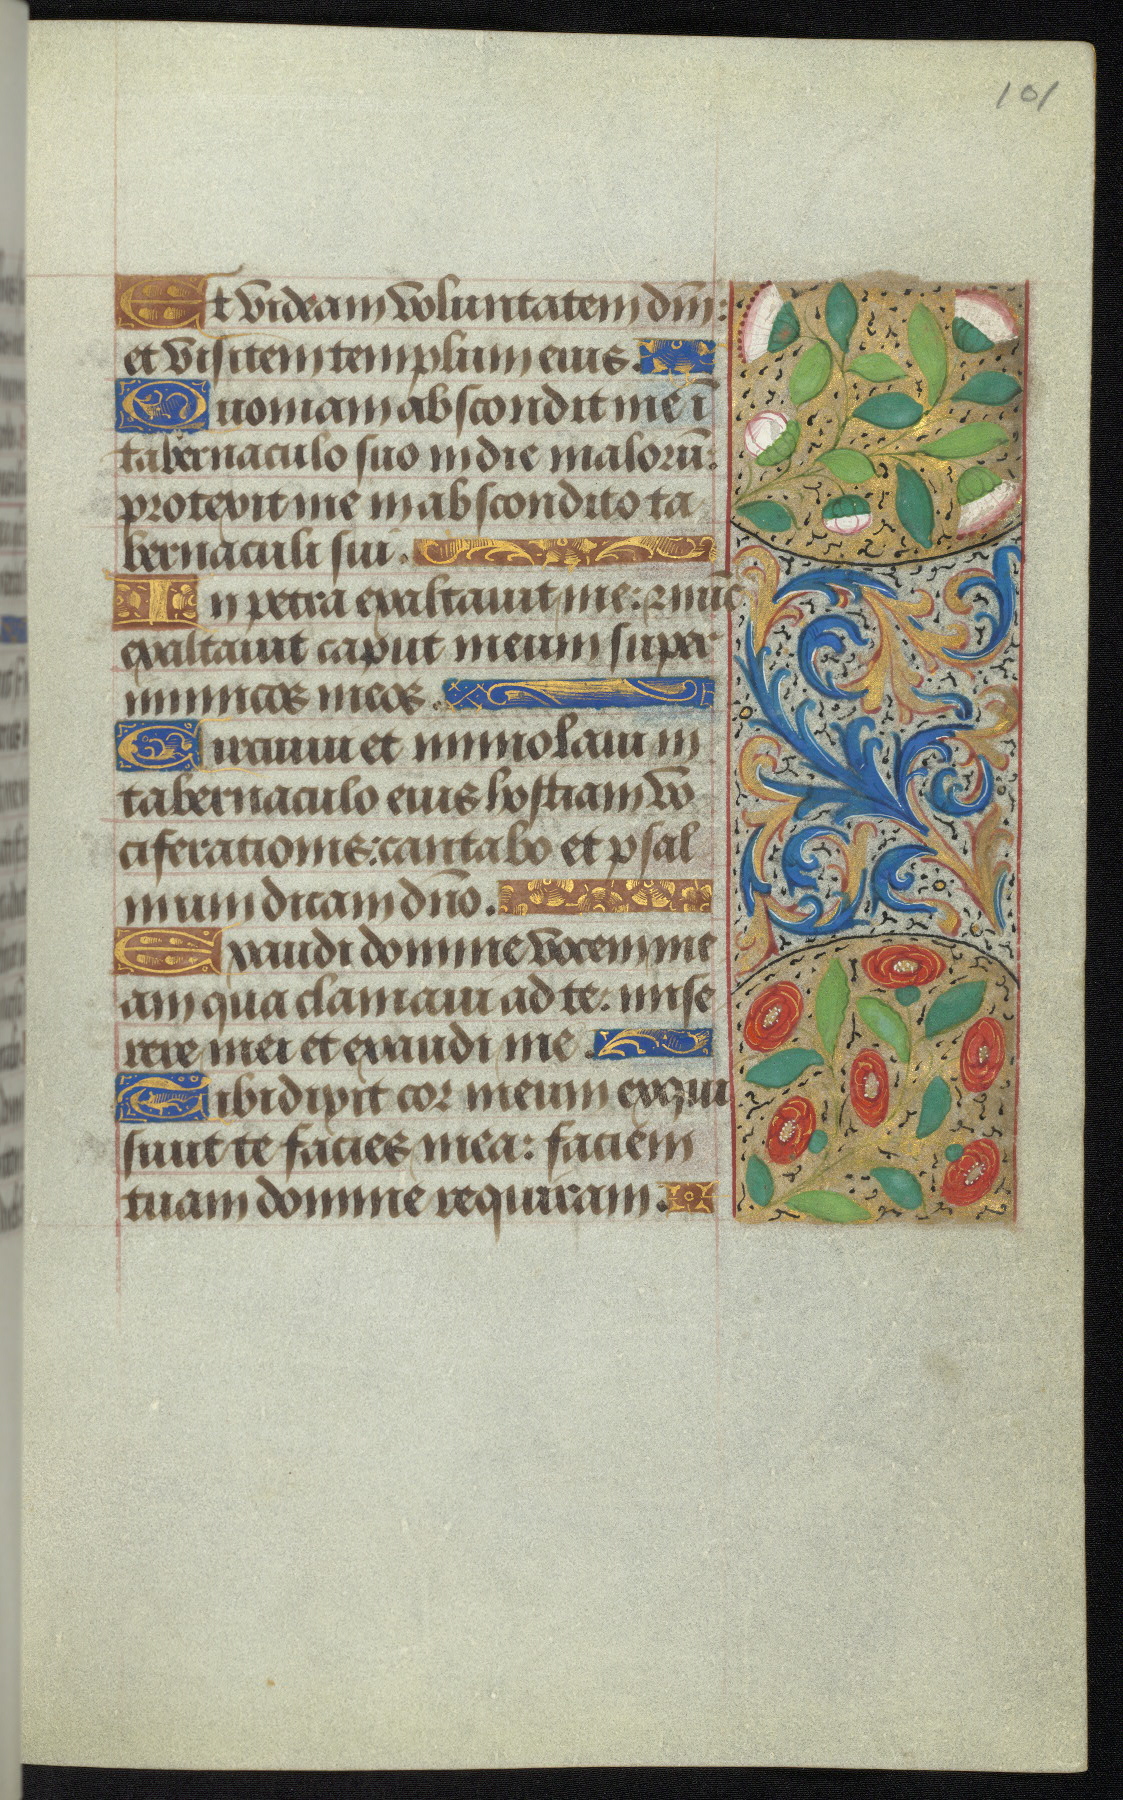 101
Et videam voluntatem dñi:
et visitem templum eius.
Quoniam abscondit me ĩ
tabernaculo suo in die malorũ:
protexit me in abscondito ta
bernaculi sui.
In petra exaltavit me: ⁊ nũc
exaltavit caput meum super
inimicos meos.
Circuivi et immolavi in
tabernaculo eius hostiam vo
ciferationis: cantabo et psal
mum dicam dño.
Exaudi domine vocem me
am qua clamavi ad te: mise
rere mei et exaudi me.
Tibi dixit cor meum exqui
sivit te facies mea: faciem
tuam domine requiram.